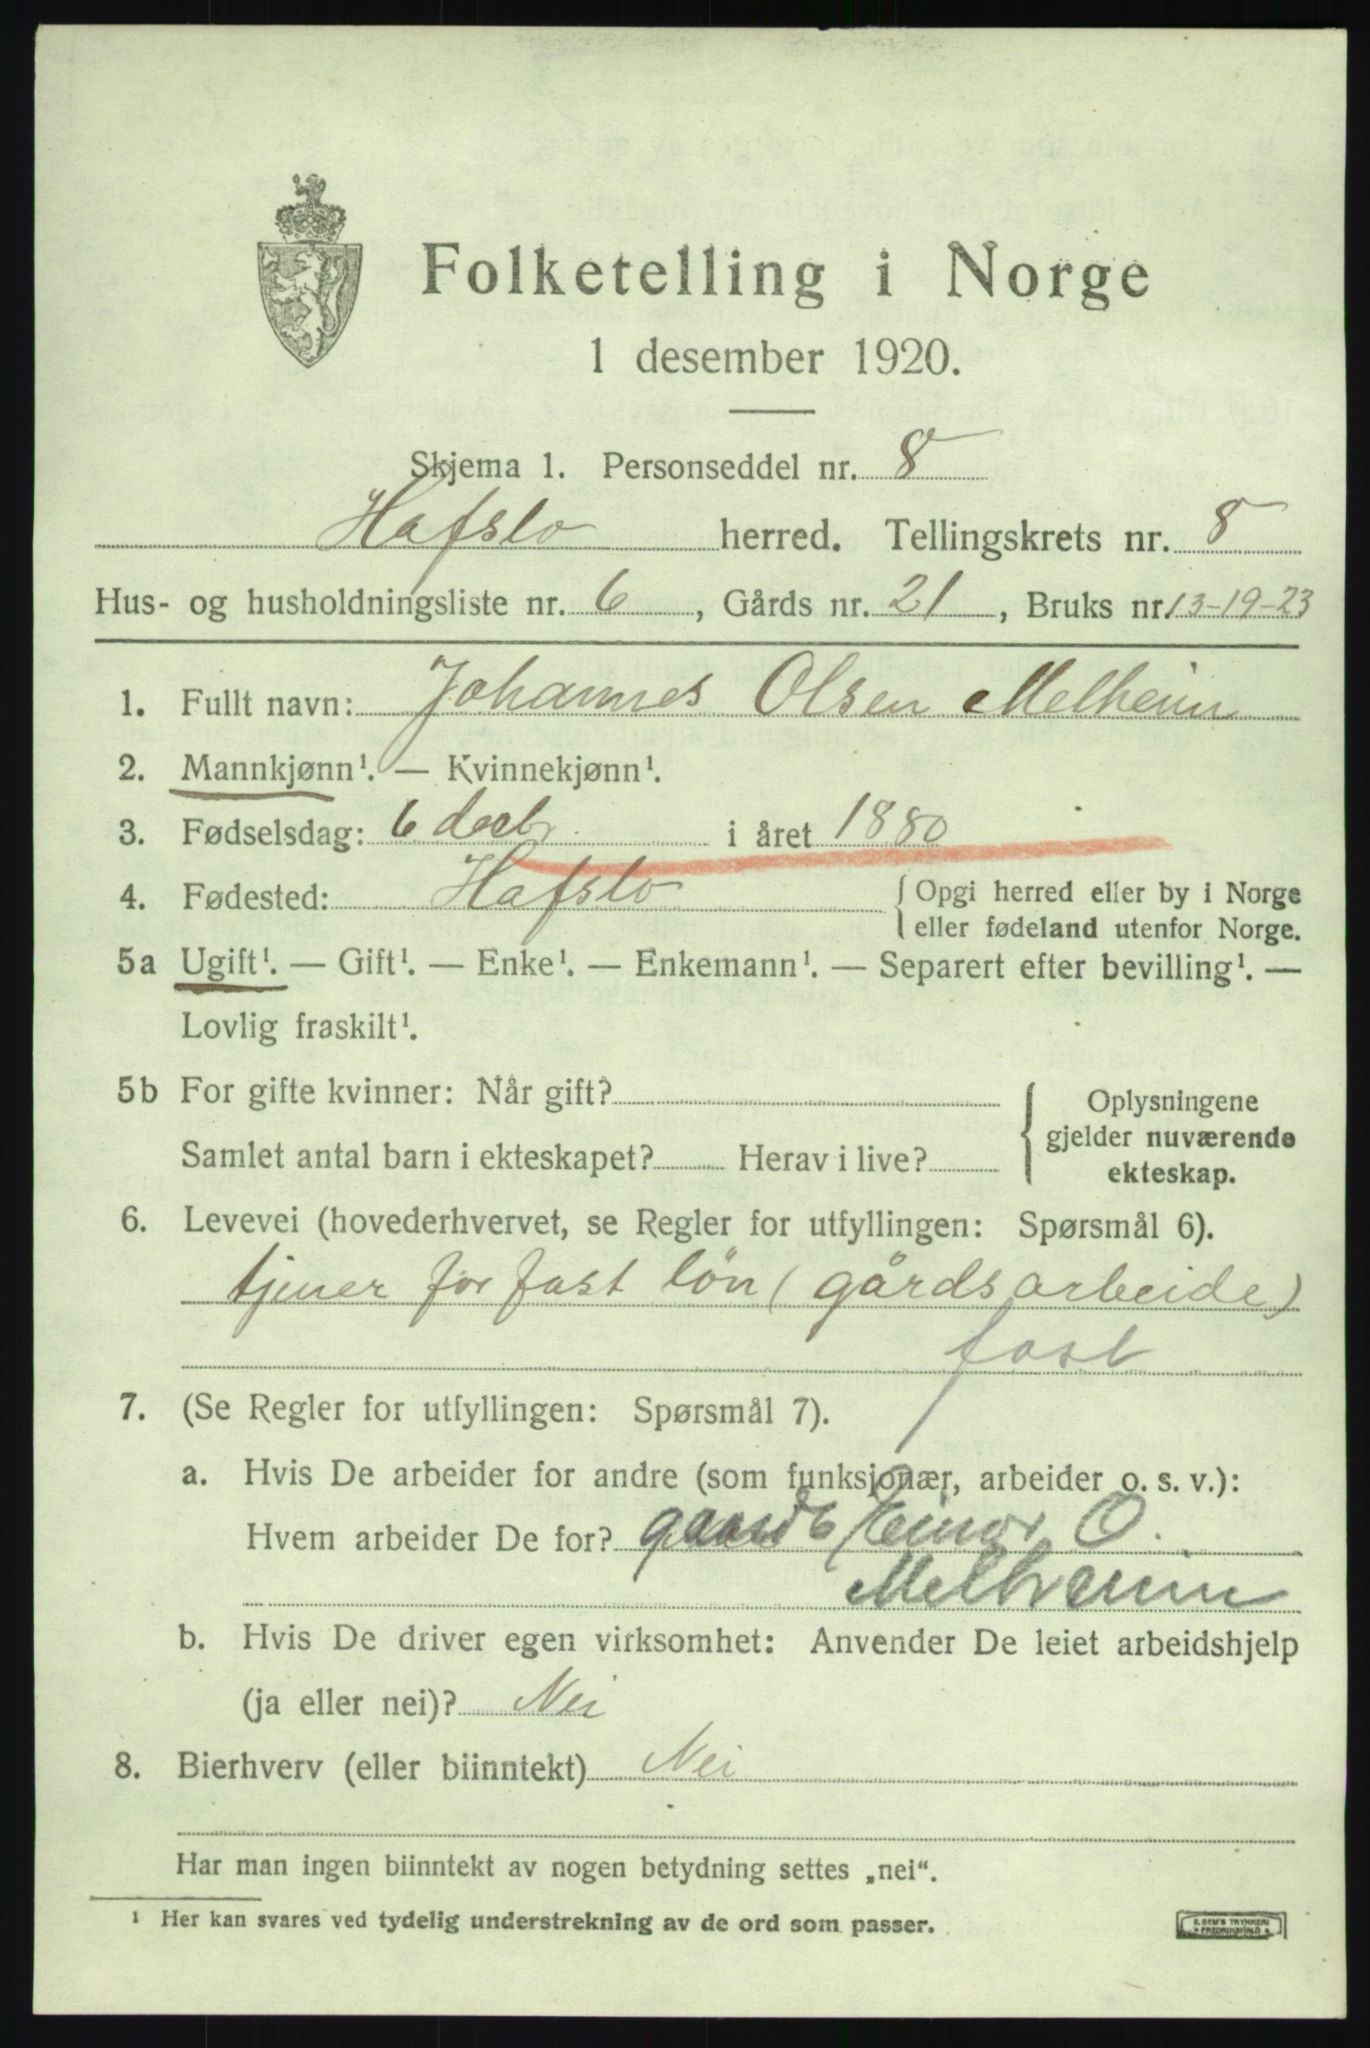 Folketelling i Norge
1 desember 1920.
Skjema 1. Personseddel nr. 8
Hafslo herred. Tellingskrets nr. 8
Hus- og husholdningsliste nr. 6, Gårds nr. 21, Bruks nr. 13-19-23
1. Fullt navn: Johannes Olsen Melheim
2. Mannkjønn¹. — Kvinnekjønn¹.
3. Fødselsdag: 6 decbr. i året 1880
4. Fødested: Hafslo { Opgi herred eller by i Norge
eller fødeland utenfor Norge.
5a Ugift¹. — Gift¹. — Enke¹. — Enkemann¹. — Separert efter bevilling¹. —
Lovlig fraskilt¹.
5b For gifte kvinner: Når gift?
Samlet antal barn i ekteskapet? Herav i live?
{ Oplysningene
gjelder nuværende
ekteskap.
6. Levevei (hovederhvervet, se Regler for utfyllingen: Spørsmål 6).
tjener for fast lön (gårdsarbeide)
fast
7. (Se Regler for utfyllingen: Spørsmål 7).
a. Hvis De arbeider for andre (som funksjonær, arbeider o. s. v.):
Hvem arbeider De for? gaardb Einar O.
Melheim
b. Hvis De driver egen virksomhet: Anvender De leiet arbeidshjelp
(ja eller nei)? Nei
8. Bierhverv (eller biinntekt) Nei
Har man ingen biinntekt av nogen betydning settes „nei".
¹ Her kan svares ved tydelig understrekning av de ord som passer.
E. SEM'S TRYKKERI
FREDRIKSHALD